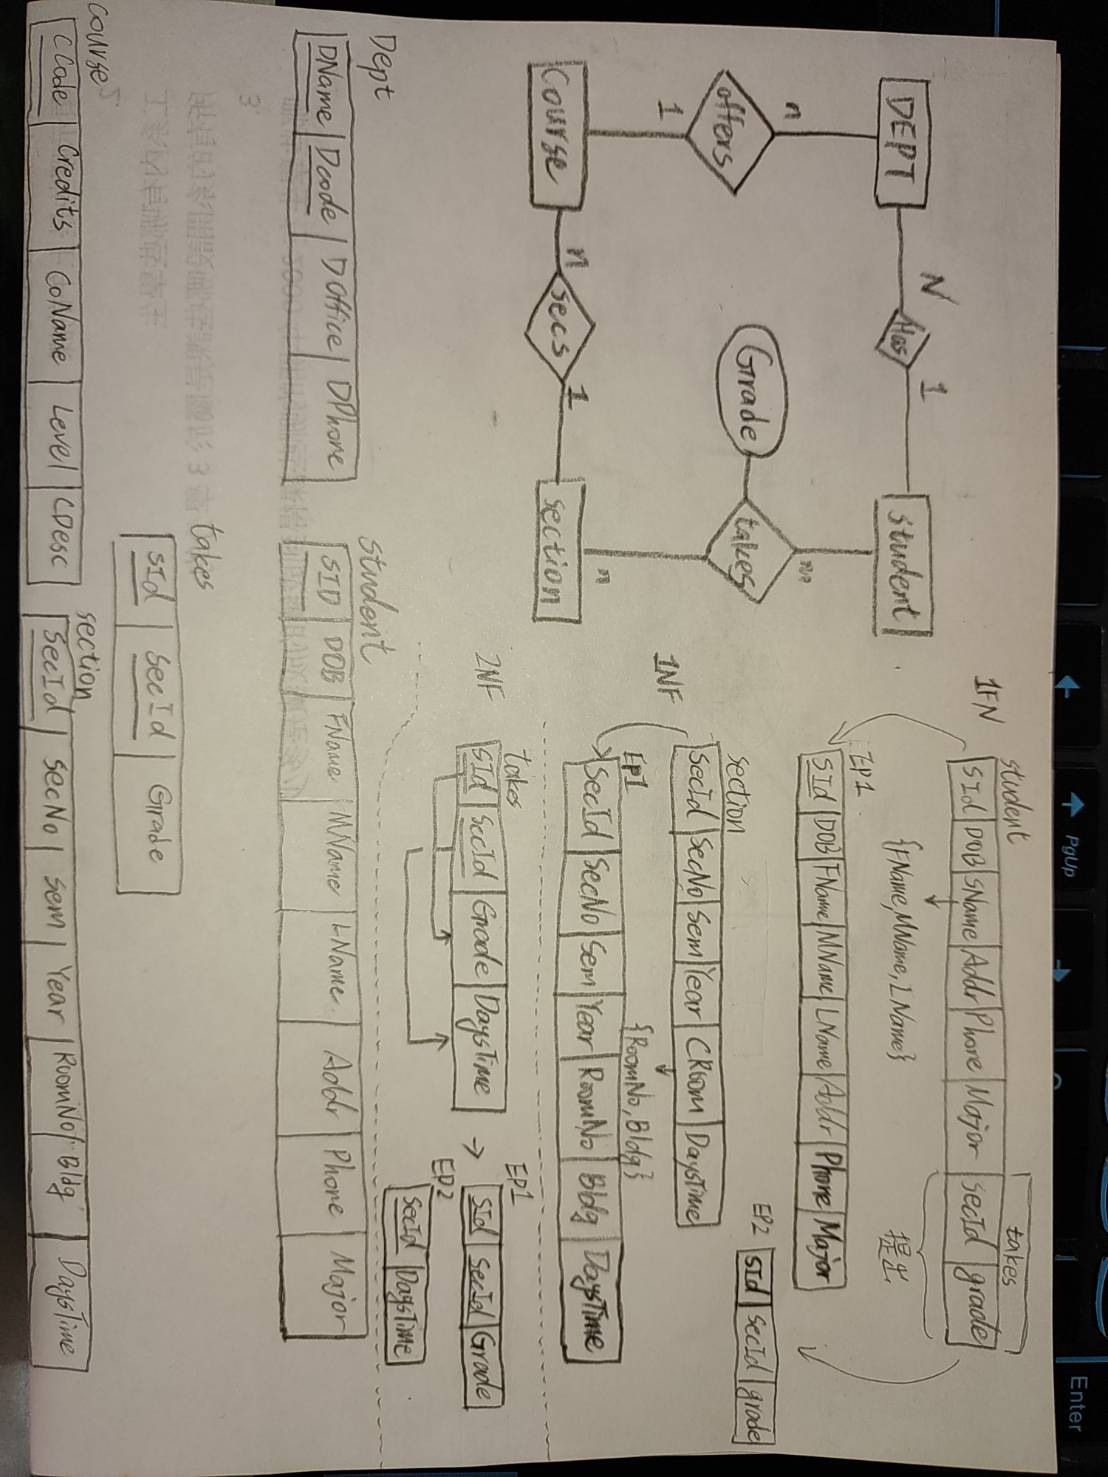 PgUp
Enter
DEPT
N
Has
1
student
n
offers
1
Grade
takes
Course
n
secs
1
section
n
student
takes
1FN
SId DOB SName Addr Phone Major secId grade
{FName, MName, LName}
提出
EP1
SId DOB FName MName LName Addr Phone Major
EP2
SId SecId grade
section
SecId SecNo Sem Year CRoom DaysTime
1NF
{RoomNo, Bldg}
EP1
SecId SecNo Sem Year RoomNo Bldg DaysTime
takes
2NF
SId SecId Grade DaysTime
EP1
SId SecId Grade
EP2
SecId DaysTime
Dept
DName Dcode DOffice DPhone
student
SID DOB FName MName LName Addr Phone Major
takes
SId SecId Grade
course
CCode Credits CoName Level CDesc
section
SecId SecNo Sem Year RoomNo Bldg DaysTime